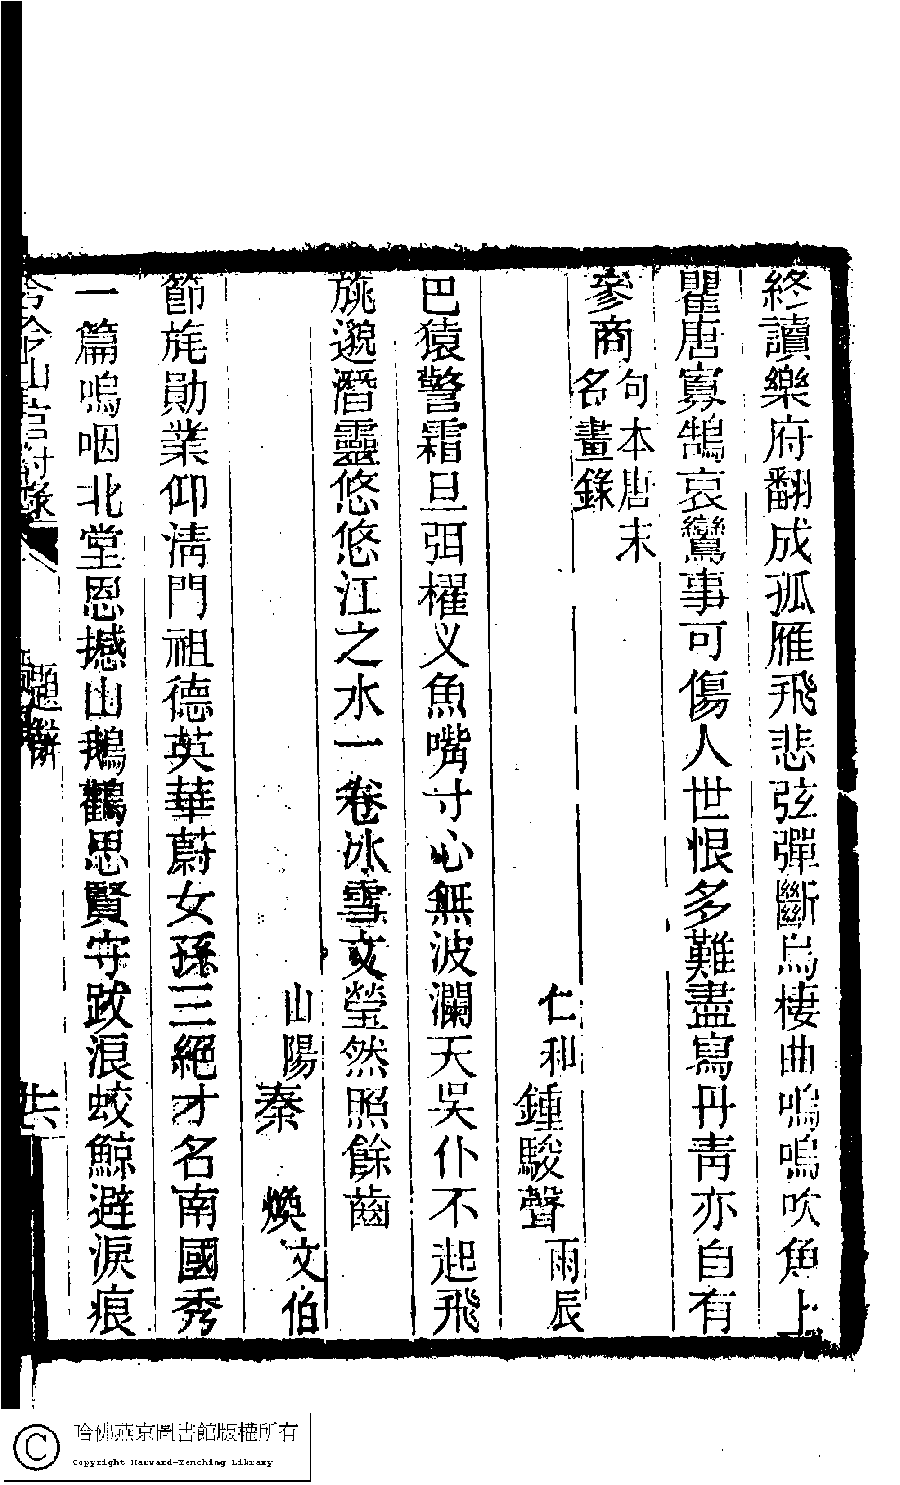 終讀樂府翻成孤雁飛悲弦彈斷烏棲曲嗚嗚吹魚上
瞿唐寡鵠哀鸞事可傷人世恨多難盡寫丹青亦自有
參商句本唐末名畫錄
仁和鍾駿聲雨辰
巴猿警霜旦弭櫂义魚嘴寸心無波瀾天吳仆不起飛
旐邈潛靈悠悠江之水一卷冰雪文瑩然照餘齒
山陽秦煥文伯
節旄勛業仰淸門祖德英華蔚女孫三絕才名南國秀
一篇嗚咽北堂恩撼山鵝鸛思賢守跋浪蛟鯨避淚痕
吟山館附錄 題辭 廿六
哈佛燕京圖書館版權所有
Copyright Harvard-Yenching Library